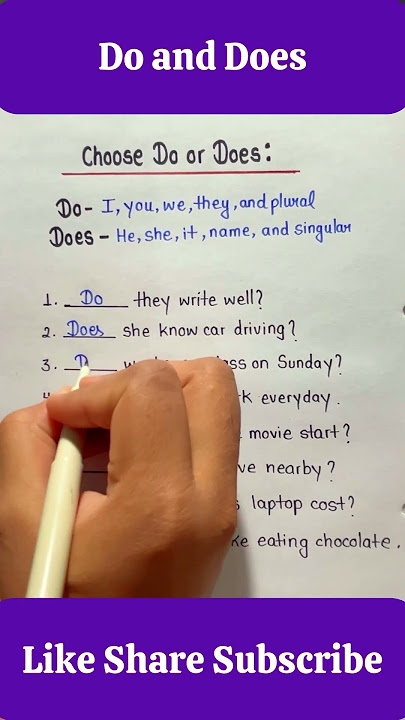 Do and Does
Choose Do or Does:
Do - I, you, we, they, and plural
Does - He, she, it, name, and singular
1. Do they write well?
2. Does she know car driving?
3. D on Sunday?
everyday.
movie start?
nearby?
laptop cost?
eating chocolate.
Like Share Subscribe